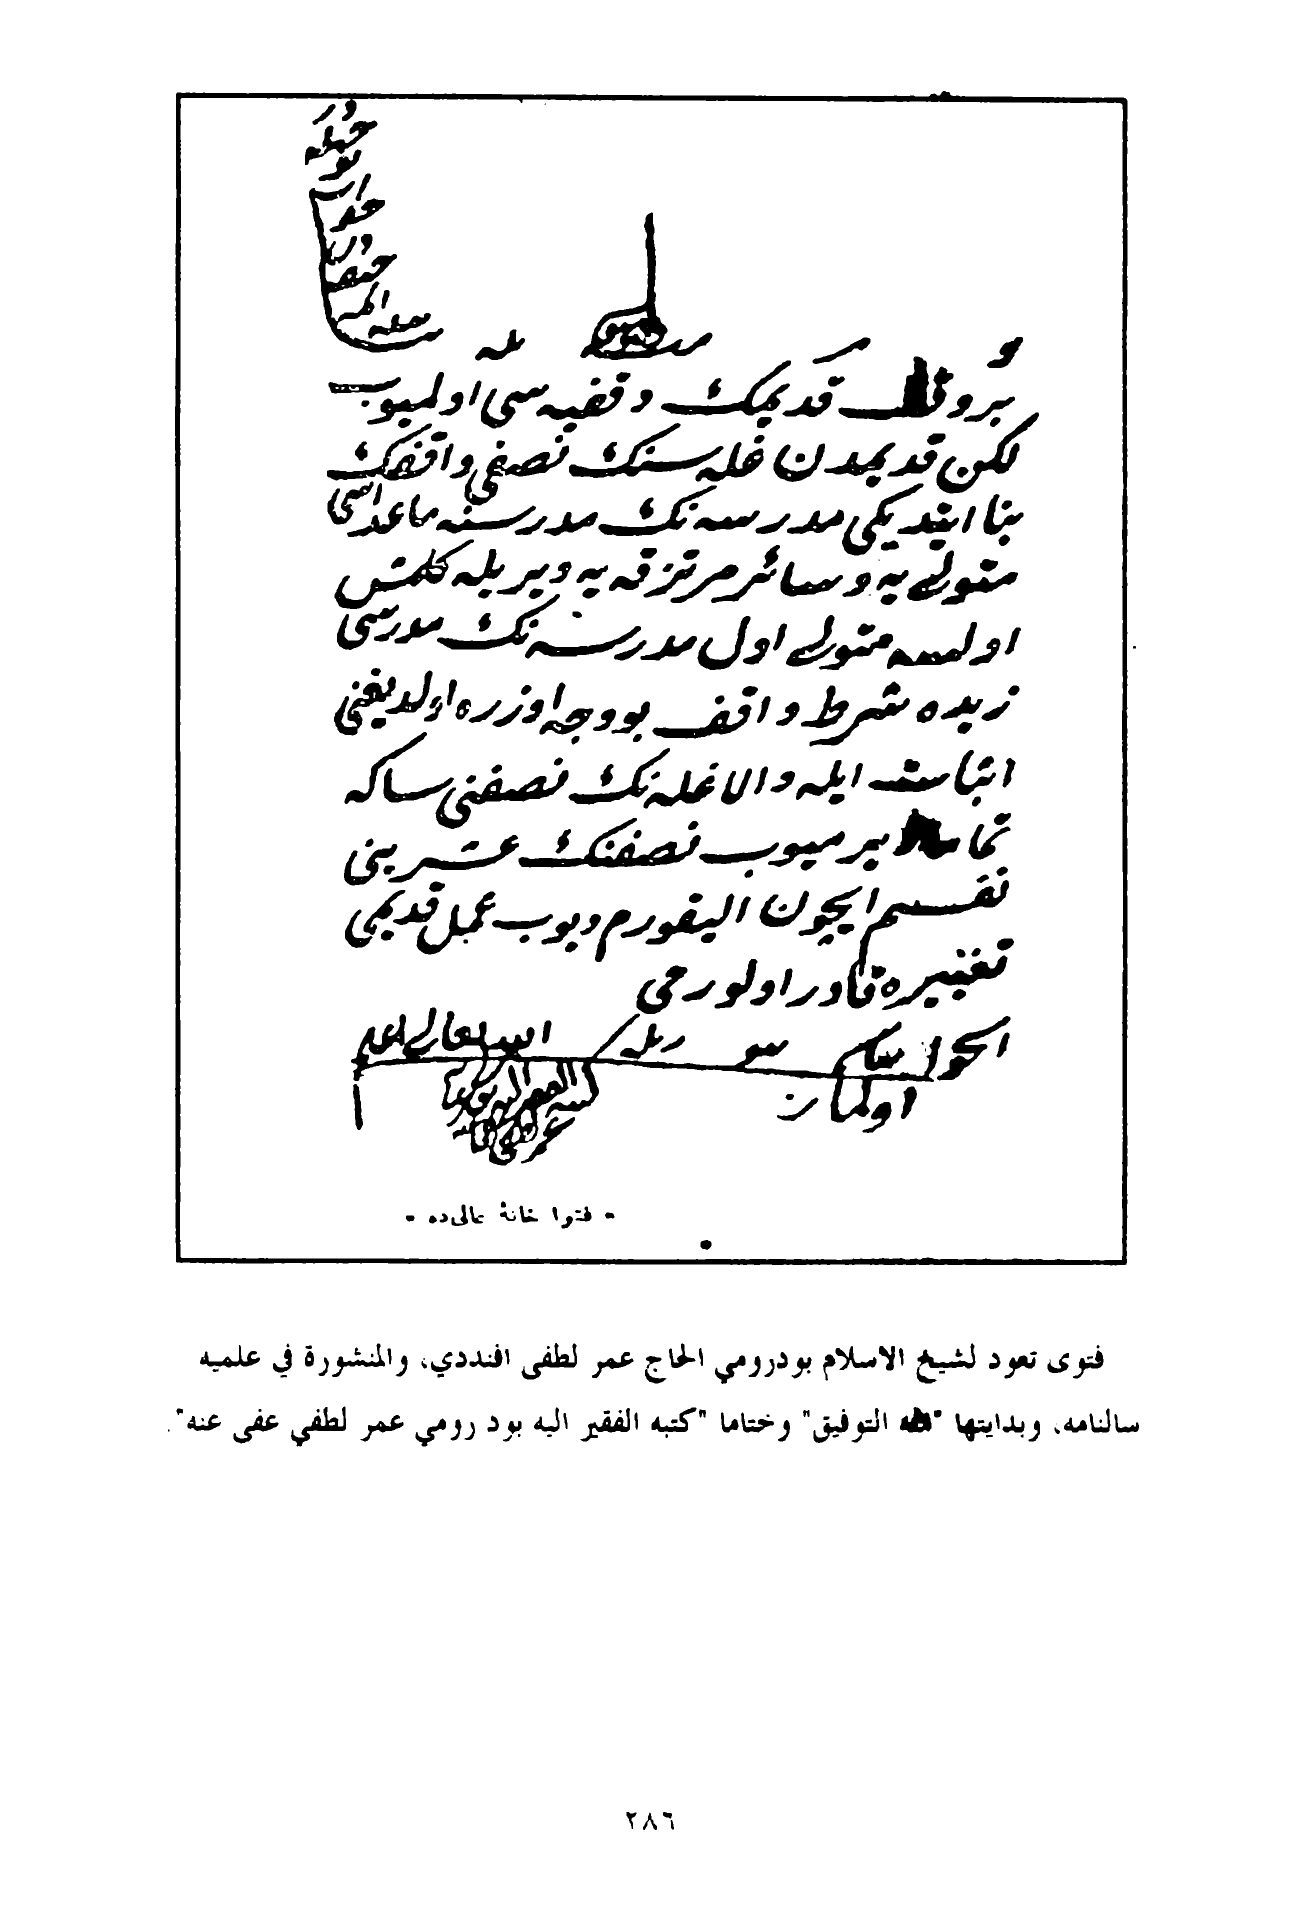 بر وقف قديمك وقفيه سى اولميوب
لكن قديمدن غله سنك نصفى واقفك
بنا ايتديكى مدرسه نك مدرسنه ماعداسى
متولى يه وسائر مرتزقه يه ويريله كلمش
اولسه متولى اول مدرسه نك مدرسى
زيده شرط واقف بووجه اوزره اولديغنى
اثبات ايله والا غله نك نصفنى ساكه
تماما ويرميوب نصفنك عشرينى
تقسيم ايچون اليقورم ديوب عمل قديمى
تغييره قادر اولورمى
الجواب
اولماز
الله تعالى اعلم
- فتوا خانهٔ عالى ده -
فتوى تعود لشيخ الاسلام بودرومي الحاج عمر لطفى افنددي، والمنشورة في علميه
سالنامه، وبدايتها "الله التوفيق" وختاما "كتبه الفقير اليه بود رومي عمر لطفي عفى عنه".
٢٨٦